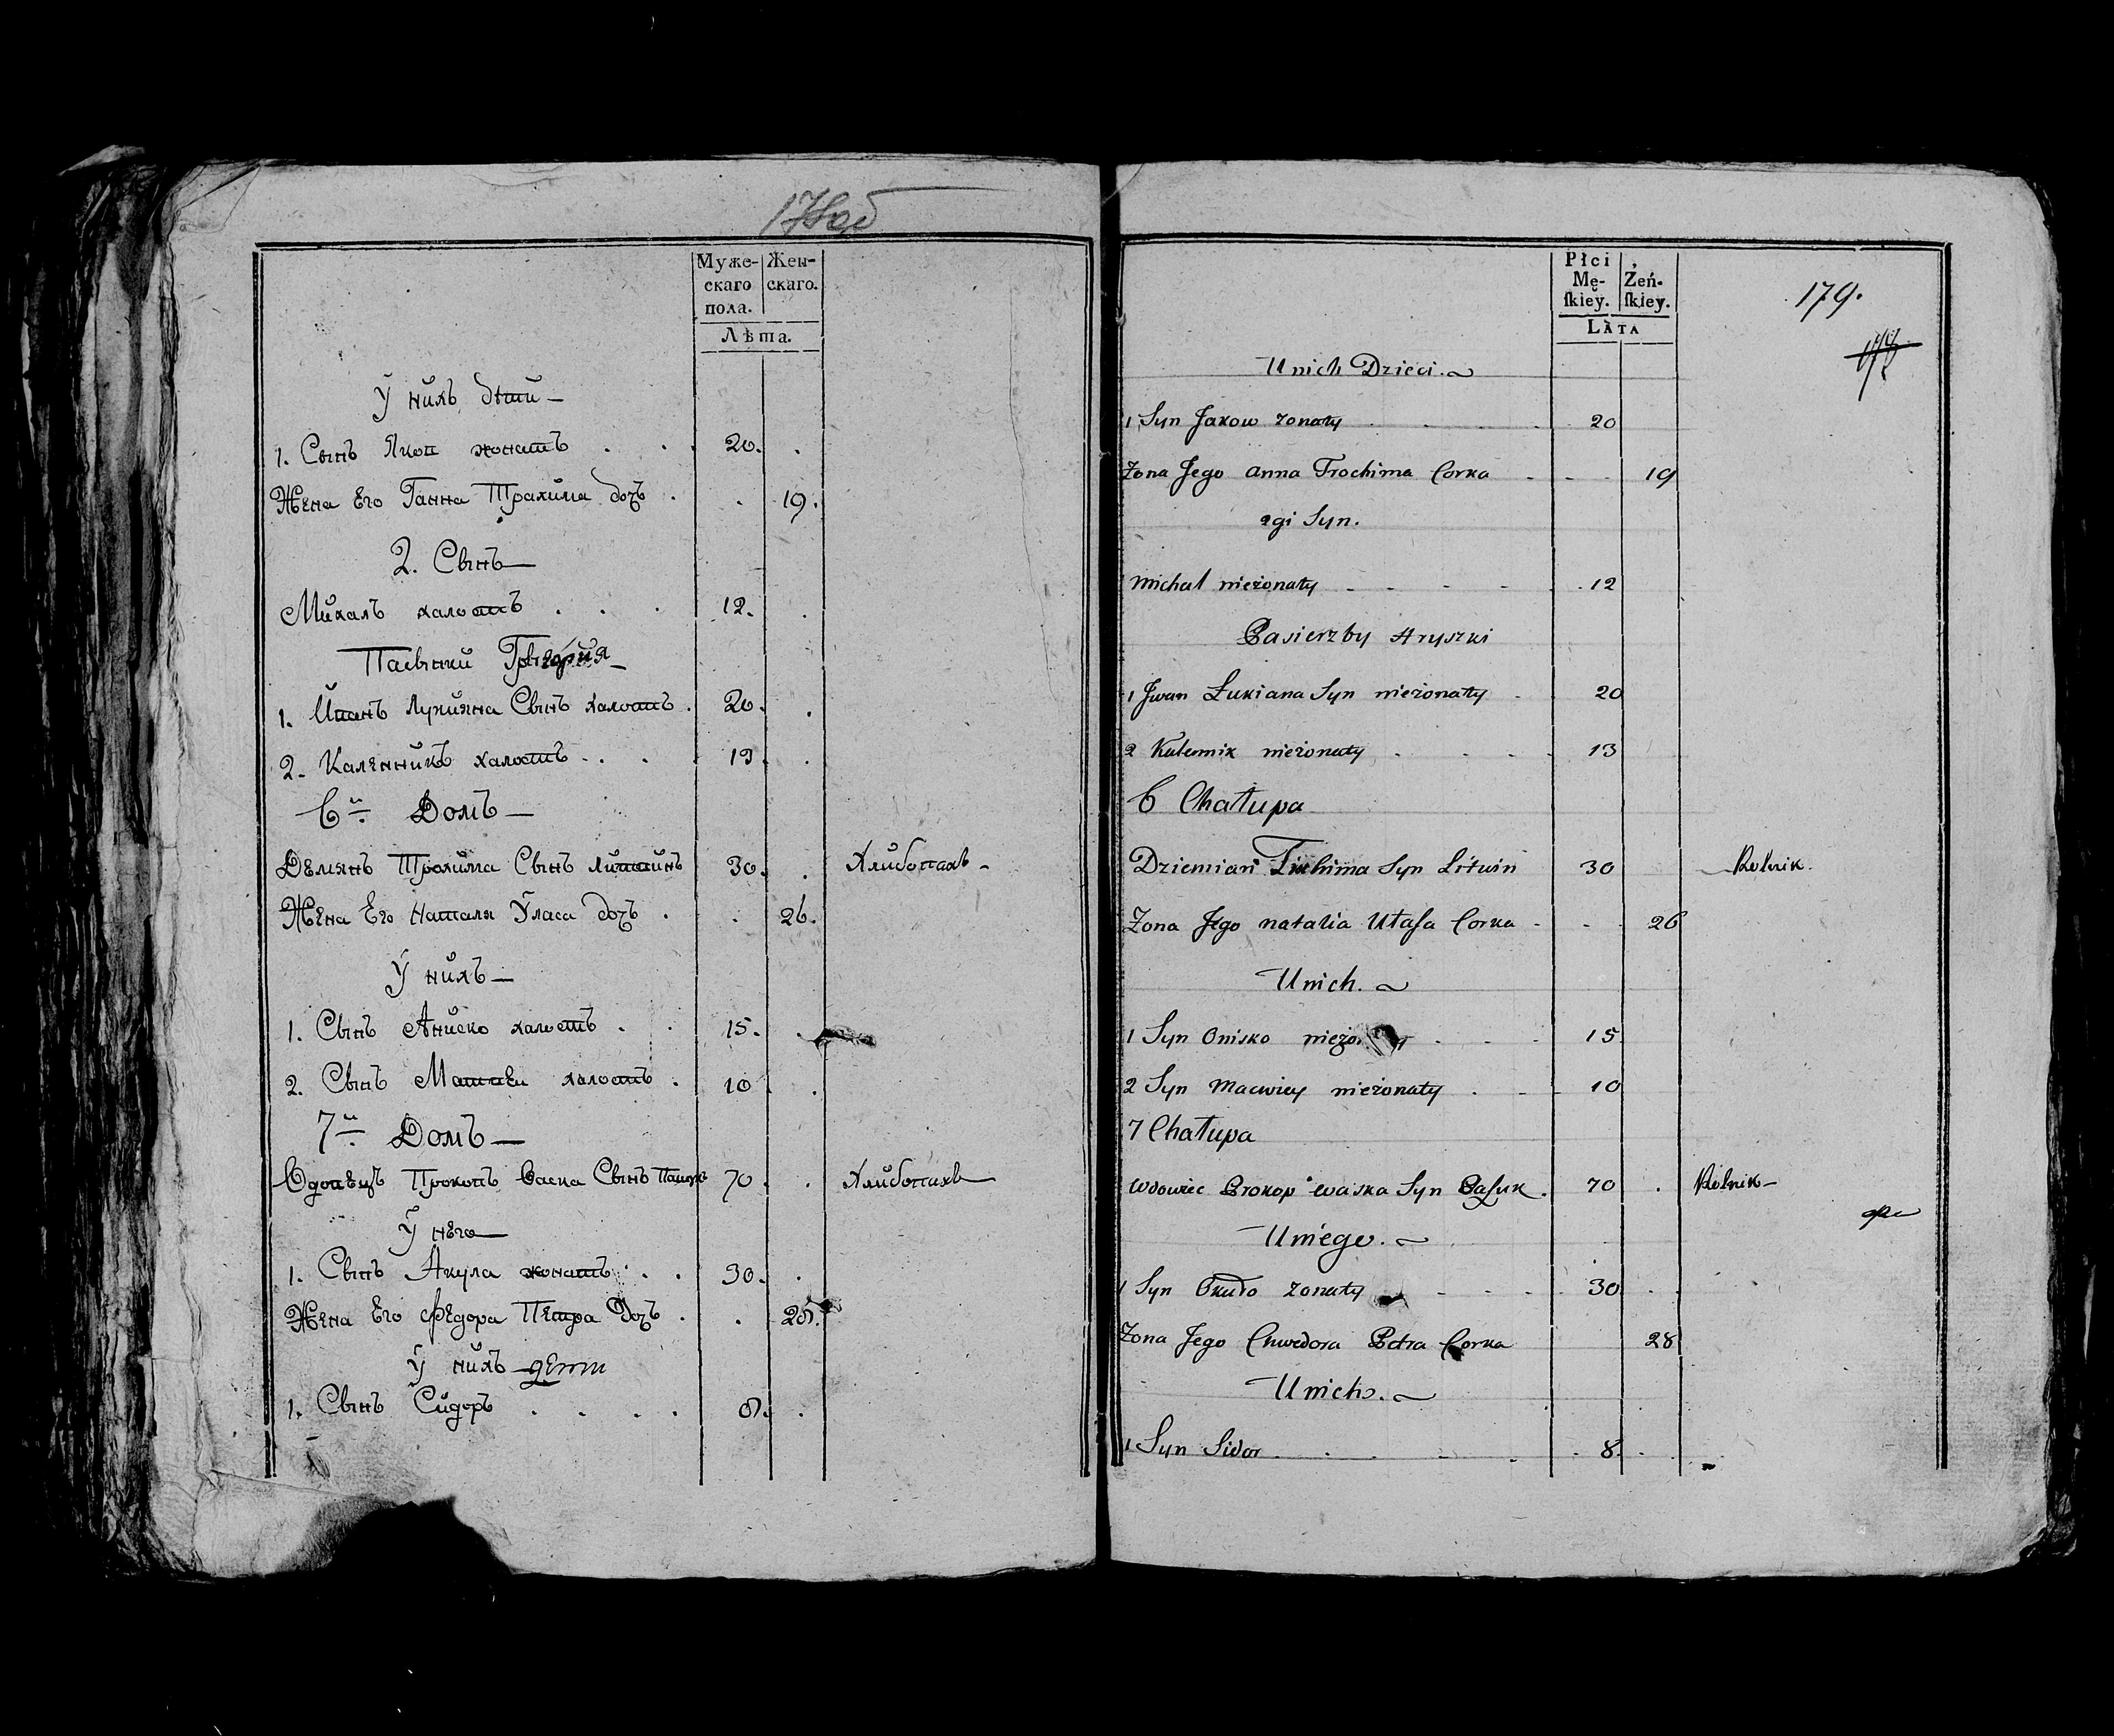 178об
Муже-
скаго
пола.
Жен-
скаго.
Лѣта.
У нихъ дѣти
1. Сынъ Якоп жонатъ 20.
Жена Его Ганна Трахима дочъ 19.
2. Сынъ
Михалъ халостъ 12.
Пасынки Григория
1. Иванъ Лукияна Сынъ халостъ 20.
2. Каленникъ халостъ 13.
6й Домъ
Демянъ Трохима Сынъ Литвинъ 30. Хлибопахъ
Жена Его Наталя Уласа дочъ 26.
У нихъ
1. Сынъ Аниско халостъ 15.
2. Сынъ Матвеи халостъ 10
7й Домъ
Вдовецъ Прокопъ Васка Сынъ 70 Хлибопахъ
У него
1. Сынъ Акула жонатъ 30.
Жена Его Федора Петра Дочъ 28.
У нихъ дети
1. Сынъ Сидоръ 8.
Płci
Mę-
skiey.
Żeń-
skiey.
Lata
179.
178
Unich Dzieci.
1 Syn Jakow zonaty 20
Zona Jego Anna Trochima Corka 19
2gi Syn.
Michal nieżonaty 12
Pasierzby Hryszki
1 Jwan Łukiana Syn nieżonaty 20
2 Kalennik nieżonaty 13
6 Chałupa
Dziemian Syn Litwin 30 Rolnik.
Zona Jego Natalia Ułasa Corka 26
Unich.
1 Syn Onisko 15
2 Syn Macwiey nieżonaty 10
7 Chałupa
Wdowiec Prokop Waska Syn Pasuk. 70 Rolnik
Uniego.
1 Syn zonaty 30
Zona Jego Chwedora Petra Corka 28
Unich.
1 Syn Sidor 8